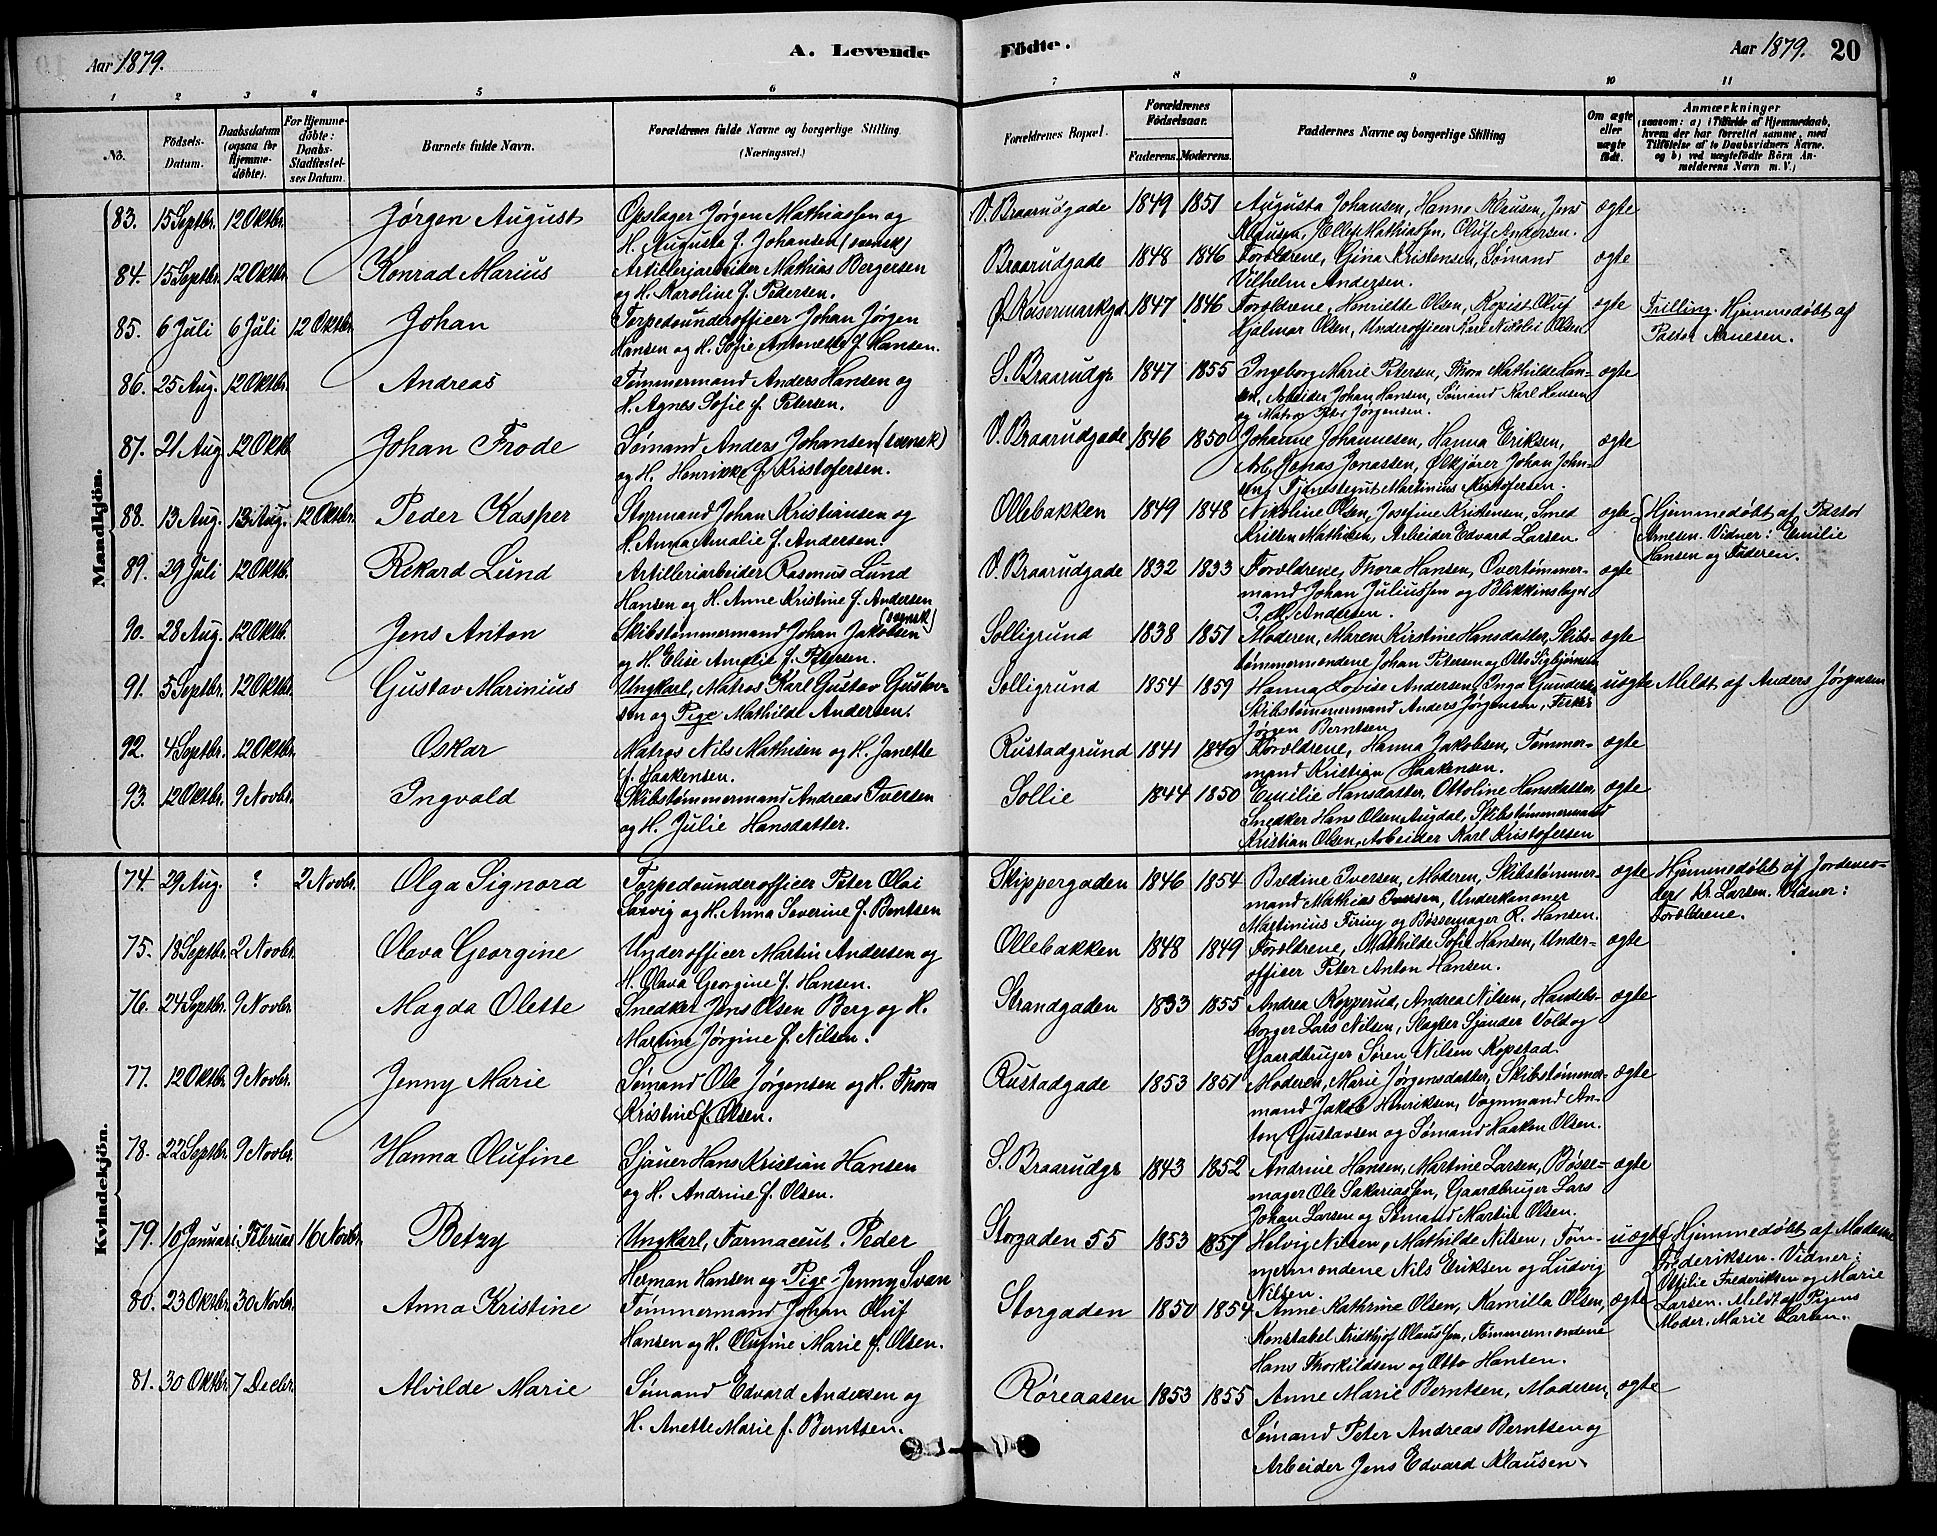 Aar 1879. A. Levende Fødte. Aar 1879. 20
1 2 3 4 5 6 7 8 9 10 11
No.
Födsels-Datum.
Daabsdatum (ogsaa for Hjemme-döbte).
For Hjemme-döbte: Daabs-Stadfæstel-ses Datum.
Barnets fulde Navn.
Forældrenes fulde Navne og borgerlige Stilling. (Næringsvei.)
Forældrenes Bopæl.
Forældrenes Födselsaar.
Faderens. Moderens.
Faddernes Navne og borgerlige Stilling
Om ægte eller uægte født.
Anmærkninger
(saasom: a) i Tilfælde af Hjemmedaab,
hvem der har forrettet samme, med
Tilføielse af to Daabsvidners Navne.
og b) ved uægtefödte Börn An-
melderens Navn m. V.)
Mandkjön.
83. 15 Septbr. 12 Oktbr. Jørgen August Opslager Jørgen Mathiassen og V. Braarudgade 1849 1851 Augusta Johansen, Hanne Klausen, Jens ægte
H. Augusta f. Johansen (svensk) Klausen, Ellef Mathiassen, Oluf Andersen.
84. 15 Septbr. 12 Oktbr Konrad Marius Artilleriarbeider Mathias Bergersen Braarudgade 1848 1846 Forældrene, Gina Kristensen, Sømand ægte
og H. Karoline f. Pedersen. Vilhelm Andersen.
85. 6 Juli 6 Juli 12 Oktbr. Johan Torpedounderofficer Johan Jørgen Ø. Keisermarkgd. 1847 1846 Forældrene, Henriette Olsen, Kopist Oluf ægte Tvilling. Hjemmedøbt af
Hansen og H. Sofie Antonette f. Hansen. Hjalmar Olsen, Underofficer Karl Nicolai Olsen Pastor Arnesen.
86. 25 Aug. 12 Oktbr. Andreas Tømmermand Anders Hansen og S. Braarudgr 1847 1855 Ingeborg Marie Petersen, Thora Mathilde Han- ægte
H. Agnes Sofie f. Petersen. sen, Arbeider Johan Hansen, Sømand Karl Hansen
og Matros Peter Jørgensen.
87. 21 Aug 12 Oktb. Johan Frode Sømand Anders Johansen (svensk) V. Braarudgade 1846 1850 Johanne Johannesen, Hanna Eriksen, ægte
og H. Henrikke f. Kristofersen. Arb. Jonas Jonassen, Ølkjører Johan John-
sen, Tjenestegut Martinius Kristofersen.
88. 13 Aug. 13 Aug. 12 Oktbr. Peder Kasper Styrmand Johan Kristiansen og Ollebakken 1849 1848 Nikoline Olsen, Josefine Kristensen, Smed ægte Hjemmedøbt af Pastor
H. Anna Amalie f. Andersen. Kristen Mathisen, Arbeider Edvard Larsen. Arnesen. Vidner: Emilie
Hansen og Faderen.
89. 29 Juli 12 Oktb. Rikard Lund Artilleriarbeider Rasmus Lund V. Braarudgade 1832 1833 Forældrene, Thora Hansen, Overtømmer- ægte
Hansen og H. Anne Kristine f. Andersen mand Johan Juliussen og Blikkenslager
Andersen.
90. 28 Aug. 12 Oktb. Jens Anton Skibstømmermand Johan Jakobsen (svensk) Solligrund 1838 1851 Moderen, Maren Kirstine Hansdatter, Skibs- ægte
og H. Elise Amalie f. Petersen. tømmermændene Johan Petersen og Otto Sigbjørnsen
91. 5 Septbr. 12 Oktbr. Gustav Marinius Ungkarl, Matros Karl Gustav Gustav- Solligrund 1854 1859 Hanna Lovise Andersen, Inga Gundersen, uægte Meldt af Anders Jørgensen
sen og Pige Mathilde Andersen. Skibstømmermand Anders Jørgensen, Fisker
Jørgen Berntsen
92. 4 Septbr. 12 Oktbr. Oskar Matros Nils Mathisen og H. Janette Rustadgrund 1841 1840 Forældrene, Hanna Jakobsen, Tømmer- ægte
f. Haakensen. mand Kristian Haakensen.
93. 12 Oktbr. 9 Novbr. Ingvald Skibstømmermand Andreas Iversen Sollie 1844 1850 Emilie Hansdatter, Ottoline Hansdatter, ægte
og H. Julie Hansdatter. Snedker Hans Olsen Augdal, Skibstømmermand
Kristian Olsen, Arbeider Karl Kristofersen
Kvindekjön.
74. 29 Aug. ? 2 Novbr. Olga Signora Torpedounderofficer Peter Olai Skippergaden 1846 1854 Bredine Iversen, Moderen, Skibstømmer- ægte Hjemmedøbt af Jordemo-
Sarvig og H. Anna Severine f. Bentsen mand Mathias Iversen, Underkanoner der K. Larsen. Vidner:
Martinius Firing og Bøssemager R. Hansen. Forældrene.
75. 18 Septbr. 2 Novbr. Olava Georgine Underofficer Martin Andersen og Ollebakken 1848 1849 Forældrene, Mathilde Sofie Hansen, Under- ægte
H. Olava Georgine f. Hansen. officer Peter Anton Hansen.
76. 24 Septbr. 9 Novbr. Magda Olette Snedker Jens Olsen Berg og H. Strandgaden 1833 1855 Andrea Kopperud, Andrea Nilsen, Handels- ægte
Martine Jørgine f. Nilsen. borger Lars Nilsen, Slagter Sjander Vold og
Gaardbruger Søren Nilsen Kopstad
77. 12 Oktbr. 9 Novbr. Jenny Marie Sømand Ole Jørgensen og H. Thora Rustadgade 1853 1851 Moderen, Marie Jørgensdatter, Skibstømmer- ægte
Kristine f. Olsen. mand Jakob Henriksen, Vognmand An-
ton Gustavsen og Sømand Haakon Olsen.
78. 22 Septbr. 9 Novbr. Hanna Olufine Sjauer Hans Kristian Hansen S. Braarudgr 1843 1852 Andrine Hansen, Martine Larsen, Bøsse- ægte
og H. Andrine f. Olsen. mager Ole Sakariassen, Gaardbruger Lars
Johan Larsen og Sømand Martin Olsen.
79. 10 Januar i Februar 16 Novbr. Betzy Ungkarl, Farmaceut Peder Storgaden 55 1853 1857 Helvig Nilsen, Mathilde Nilsen, Tøm- uægte Hjemmedøbt af Madame
Herman Hansen og Pige Jenny Svan mermændene Nils Eriksen og Ludvig Frederiksen. Vidner:
Nilsen. Ottilie Frederiksen og Marie
80. 23 Oktbr. 30 Novbr. Anna Kristine Tømmermand Johan Oluf Storgaden 1850 1854 Anne Kathrine Olsen, Kamilla Olsen, ægte Larsen. Meldt af Pigens
Hansen og H. Olufine Marie f. Olsen. Konstabel Fridthjof Olaussen, Tømmermændene Moder, Marie Larsen.
Hans Thorkildsen og Otto Hansen.
81. 30 Oktbr. 7 Decbr. Alvilde Marie Sømand Edvard Andersen og Røreaasen 1853 1855 Anne Marie Berntsen, Moderen, ægte
H. Anette Marie f. Berntsen. Sømand Peter Andreas Berntsen og
Arbeider Jens Edvard Klausen.